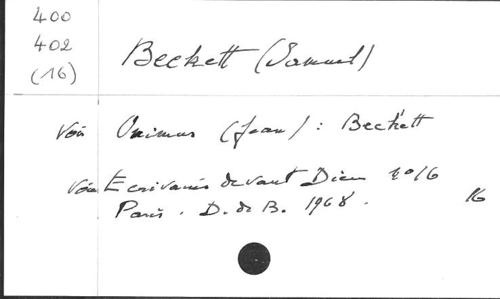 400
402
(16)
Beckett (Samuel)
Voir Onimus (Jean) : Beckett
Voir Ecrivains devant Dieu 2016
Paris . D. de B. 1968 .
16